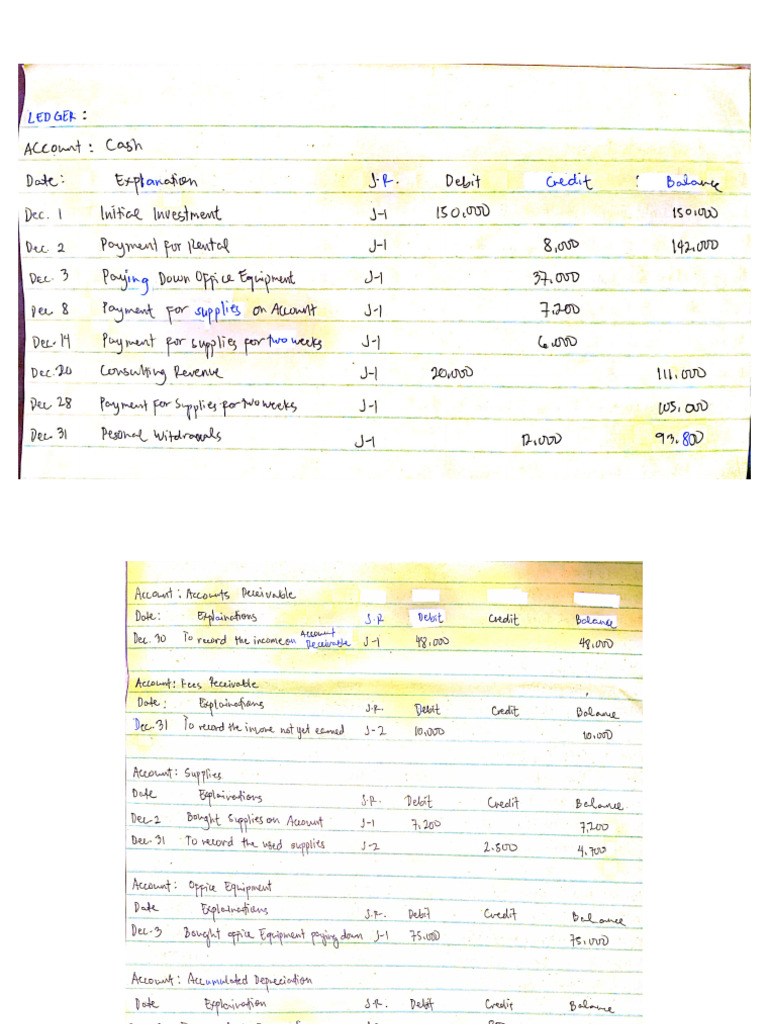 LEDGER :
Account : Cash
Date : Explanation J.R. Debit Credit : Balance
Dec. 1 Initial Investment J-1 150,000 150,000
Dec. 2 Payment for Rental J-1 8,000 142,000
Dec. 3 Paying Down Office Equipment J-1 37,000
Dec. 8 Payment for supplies on Account J-1 7,200
Dec. 14 Payment for supplies for two weeks J-1 6,000
Dec. 20 Consulting Revenue J-1 20,000 111,000
Dec. 28 Payment for Supplies for two weeks J-1 105,000
Dec. 31 Pesonal Witdrawals J-1 12,000 93,800
Account : Accounts Receivable
Date : Explainations J.R Debit Credit Balance
Dec. 30 To record the income on Account Receivable J-1 48,000 48,000
Account : Fees Receivable
Date : Explainations J.R. Debit Credit Balance
Dec. 31 To record the income not yet earned J-2 10,000 10,000
Account : Supplies
Date Explainations J.R. Debit Credit Balance
Dec-2 Bought Supplies on Account J-1 7,200 7,200
Dec-31 To record the used supplies J-2 2,500 4,700
Account : Office Equipment
Date Explainations J.R. Debit Credit Balance
Dec-3 Bought office Equipment paying down J-1 75,000 75,000
Account : Accumulated Depreciation
Date Explaination J.R. Debit Credit Balance